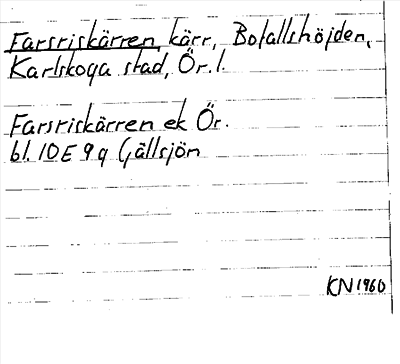 Farsriskärren, kärr, Bofallshöjden,
Karlskoga stad, Ör. l.
Farsriskärren ek Ör.
bl. 10E 9g Gällsjön
KN 1960